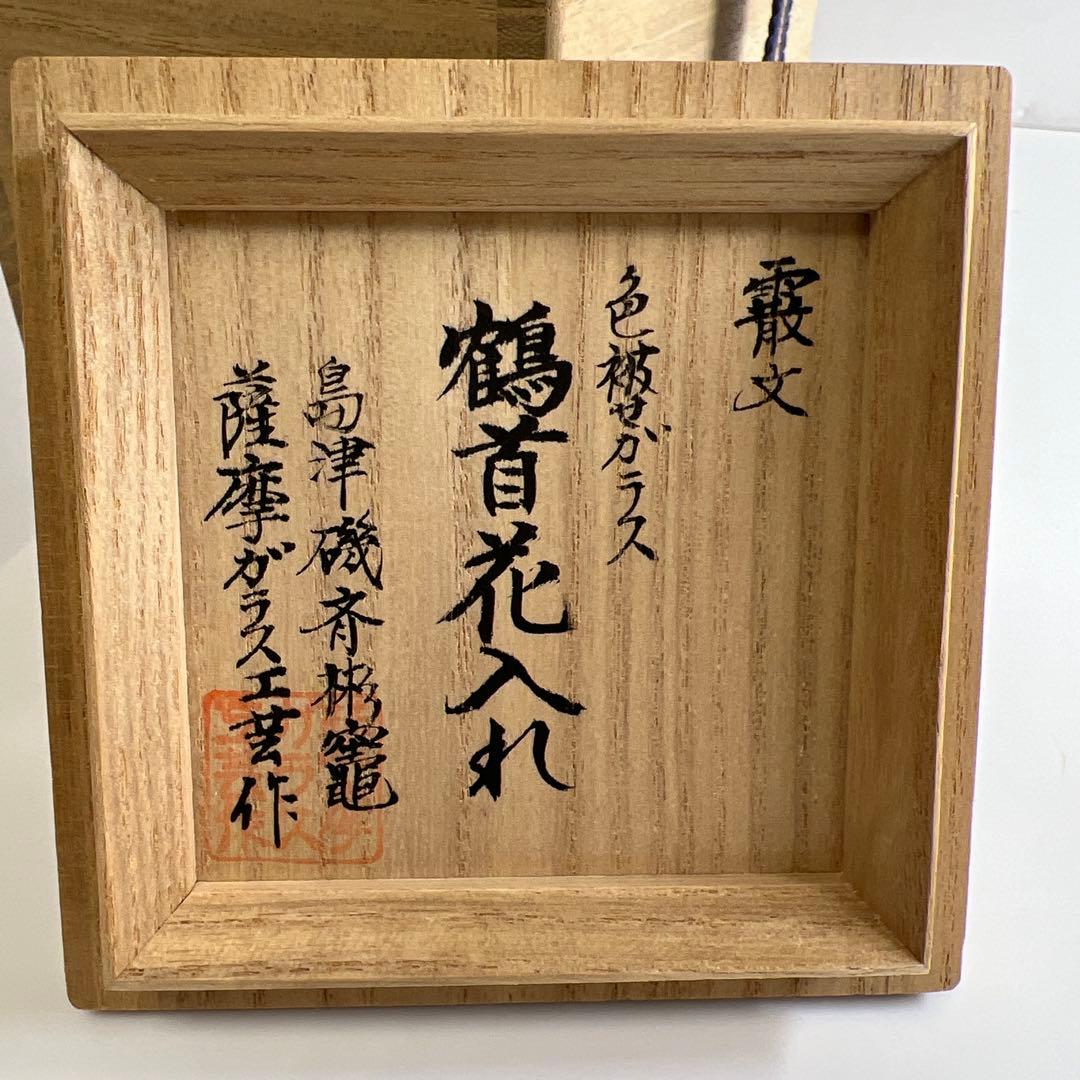 霰文
色被せガラス
鶴首花入れ
島津磯斉彬竈
薩摩ガラス工芸作